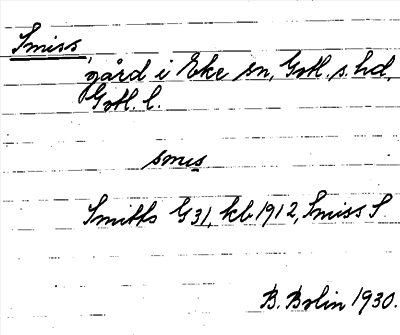 Smiss,
gård i Eke sn, Gotl. s. hd,
Gotl. l.
smis
Smitts G 31, kb 1912, Smiss S.
B. Bolin 1930.